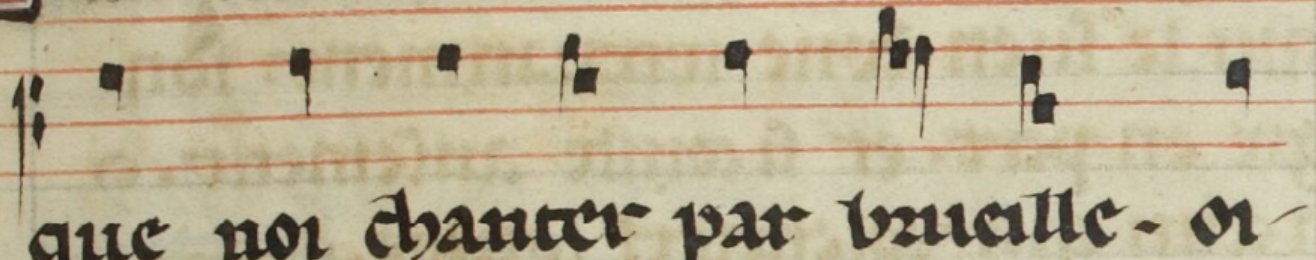 que noi chanter par brueille. oi